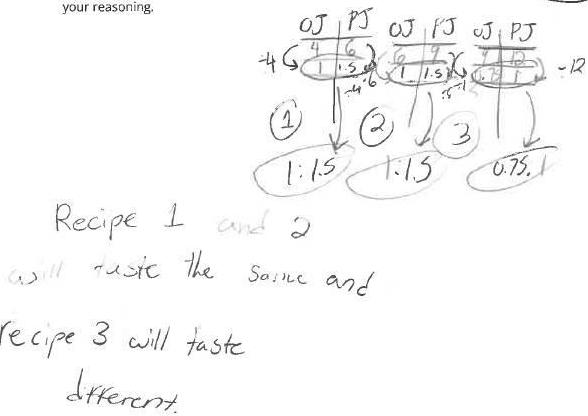 your reasoning.
OJ PJ OJ PJ OJ PJ
4 6 6 9 9 12
÷4 1 1.5 1 1.5 0.75 1 ÷12
1 2 3
1:1.5 1:1.5 0.75:1
Recipe 1 and 2
will taste the same and
recipe 3 will taste
different.